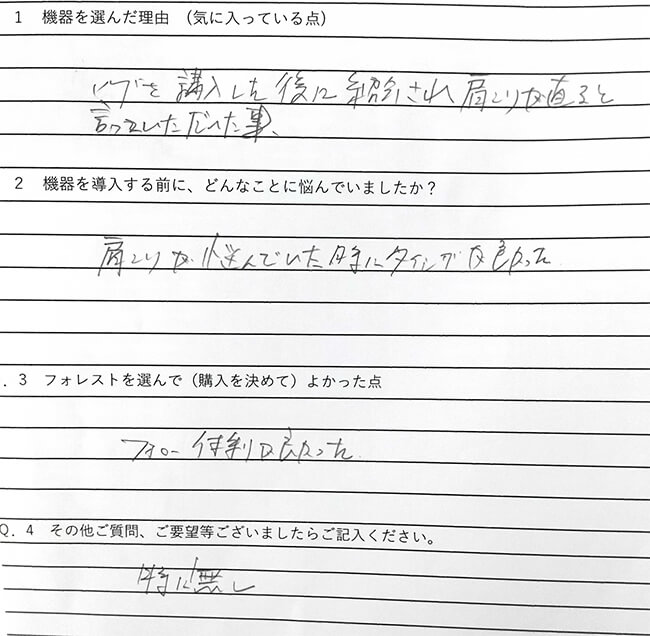 1 機器を選んだ理由 （気に入っている点）
イブを購入した後に紹介され肩こりが直ると
言っていただいた事、
2 機器を導入する前に、どんなことに悩んでいましたか？
肩こりが悩んでいた時にタイングが良かった
. 3 フォレストを選んで（購入を決めて）よかった点
フォロー 体制が良かった
Q. 4 その他ご質問、ご要望等ございましたらご記入ください。
特に無し